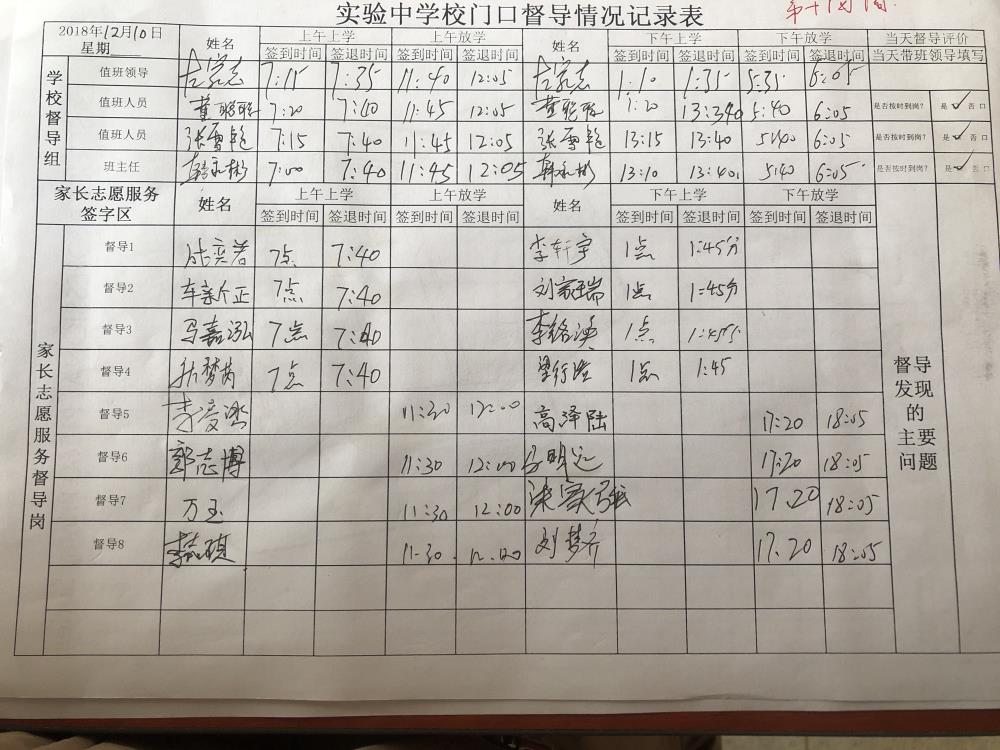 实验中学校门口督导情况记录表
2018年12月10日
星期
姓名 上午上学 上午放学 姓名 下午上学 下午放学 当天督导评价
签到时间 签退时间 签到时间 签退时间 签到时间 签退时间 签到时间 签退时间 当天带班领导填写
学校督导组
值班领导 7:15 7:35 11:40 12:05 1:10 1:35 5:35 6:05
值班人员 董聪聪 7:20 7:40 11:45 12:05 董聪聪 1:20 5:40 6:05 是否按时到岗? 是 否
值班人员 张雪艳 7:15 7:40 11:45 12:05 张雪艳 13:15 13:40 5:40 6:05 是否按时到岗? 是 否
班主任 韩永彬 7:00 7:40 11:45 12:05 韩永彬 13:10 13:40 5:40 6:05 是否按时到岗? 是 否
家长志愿服务签字区 姓名 上午上学 上午放学 姓名 下午上学 下午放学
签到时间 签退时间 签到时间 签退时间 签到时间 签退时间 签到时间 签退时间
家长志愿服务督导岗
督导1 7点 7:40 李轩宇 1点 1:45分
督导2 7点 7:40 刘家瑞 1点 1:45分
督导3 马嘉泓 7点 7:40 1点 1:45分
督导4 7点 7:40 1点 1:45
督导5 11:30 12:00 高泽陆 17:20 18:05
督导6 郭志博 11:30 12:00 17:20 18:05
督导7 万玉 11:30 12:00 17:20 18:05
督导8 11:30 12:00 刘梦齐 17:20 18:05
督导发现的主要问题